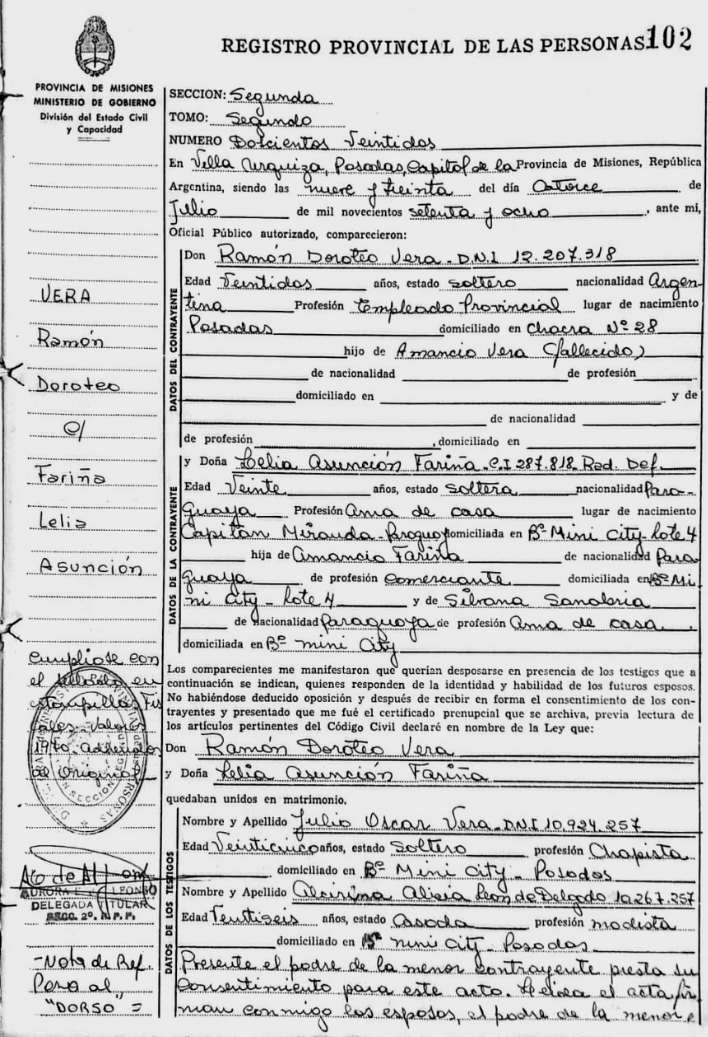 REGISTRO PROVINCIAL DE LAS PERSONAS 102
PROVINCIA DE MISIONES
MINISTERIO DE GOBIERNO
División del Estado Civil
y Capacidad
VERA
Ramón
Doroteo
c/
Fariña
Lelia
Asunción
Cumpliose con
el sellado en
estampillas Fis
cales valores
1970 adheridas
al Original
DELEGADA TITULAR
SECC. 2º. R. P. P.
-Nota de Ref.
Pasa al
"DORSO" =
SECCION: Segunda
TOMO: Segundo
NUMERO Doscientos Veintidos
En Villa Urquiza, Posadas, Capital de la Provincia de Misiones, República
Argentina, siendo las nueve y treinta del día Catorce de
Julio de mil novecientos setenta y ocho, ante mi,
Oficial Público autorizado, comparecieron:
DATOS DEL CONTRAYENTE
Don Ramón Doroteo Vera - D.N.I 12.207.318
Edad Veintidos años, estado soltero nacionalidad Argen-
tina Profesión Empleado Provincial lugar de nacimiento
Posadas domiciliado en chacra Nº 28
hijo de Amancio Vera (fallecido)
de nacionalidad de profesión
domiciliado en y de
de nacionalidad
de profesión , domiciliado en
DATOS DE LA CONTRAYENTE
y Doña Lelia Asunción Fariña - C.I 287.818. Rad. Def.
Edad Veinte años, estado soltera nacionalidad Para-
guaya Profesión Ama de casa lugar de nacimiento
Capitan Miranda domiciliada en Bº Mini City - lote 4
hija de Amancio Fariña de nacionalidad Para
guaya de profesión comerciante domiciliada en Bº Mi-
ni City - Lote 4 y de Silvana Sanabria
de nacionalidad Paraguaya de profesión Ama de casa,
domiciliada en Bº mini City
Los comparecientes me manifestaron que querían desposarse en presencia de los testigos que a
continuación se indican, quienes responden de la identidad y habilidad de los futuros esposos.
No habiéndose deducido oposición y después de recibir en forma el consentimiento de los con-
trayentes y presentado que me fué el certificado prenupcial que se archiva, previa lectura de
los artículos pertinentes del Código Civil declaré en nombre de la Ley que:
Don Ramón Doroteo Vera
y Doña Lelia Asunción Fariña
quedaban unidos en matrimonio.
DATOS DE LOS TESTIGOS
Nombre y Apellido Julio Oscar Vera - DNI 10.924.257
Edad Veinticinco años, estado Soltero profesión Chapista
domiciliado en Bº Mini City - Posadas
Nombre y Apellido Alicia Leon de Delgado
Edad años, estado Casada profesión modista
domiciliado en Bº mini City - Posadas
Presente el padre de la menor contrayente presta su
Consentimiento para este acto. Leida el acta fir
man conmigo los esposos, el padre de la menor e